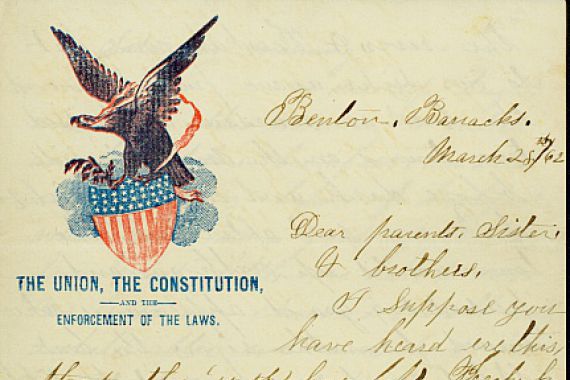 THE UNION, THE CONSTITUTION,
AND THE
ENFORCEMENT OF THE LAWS.
Benton. Barracks.
March 25th/62
Dear parents. Sister,
& brothers.
I Suppose you
have heard ere this,